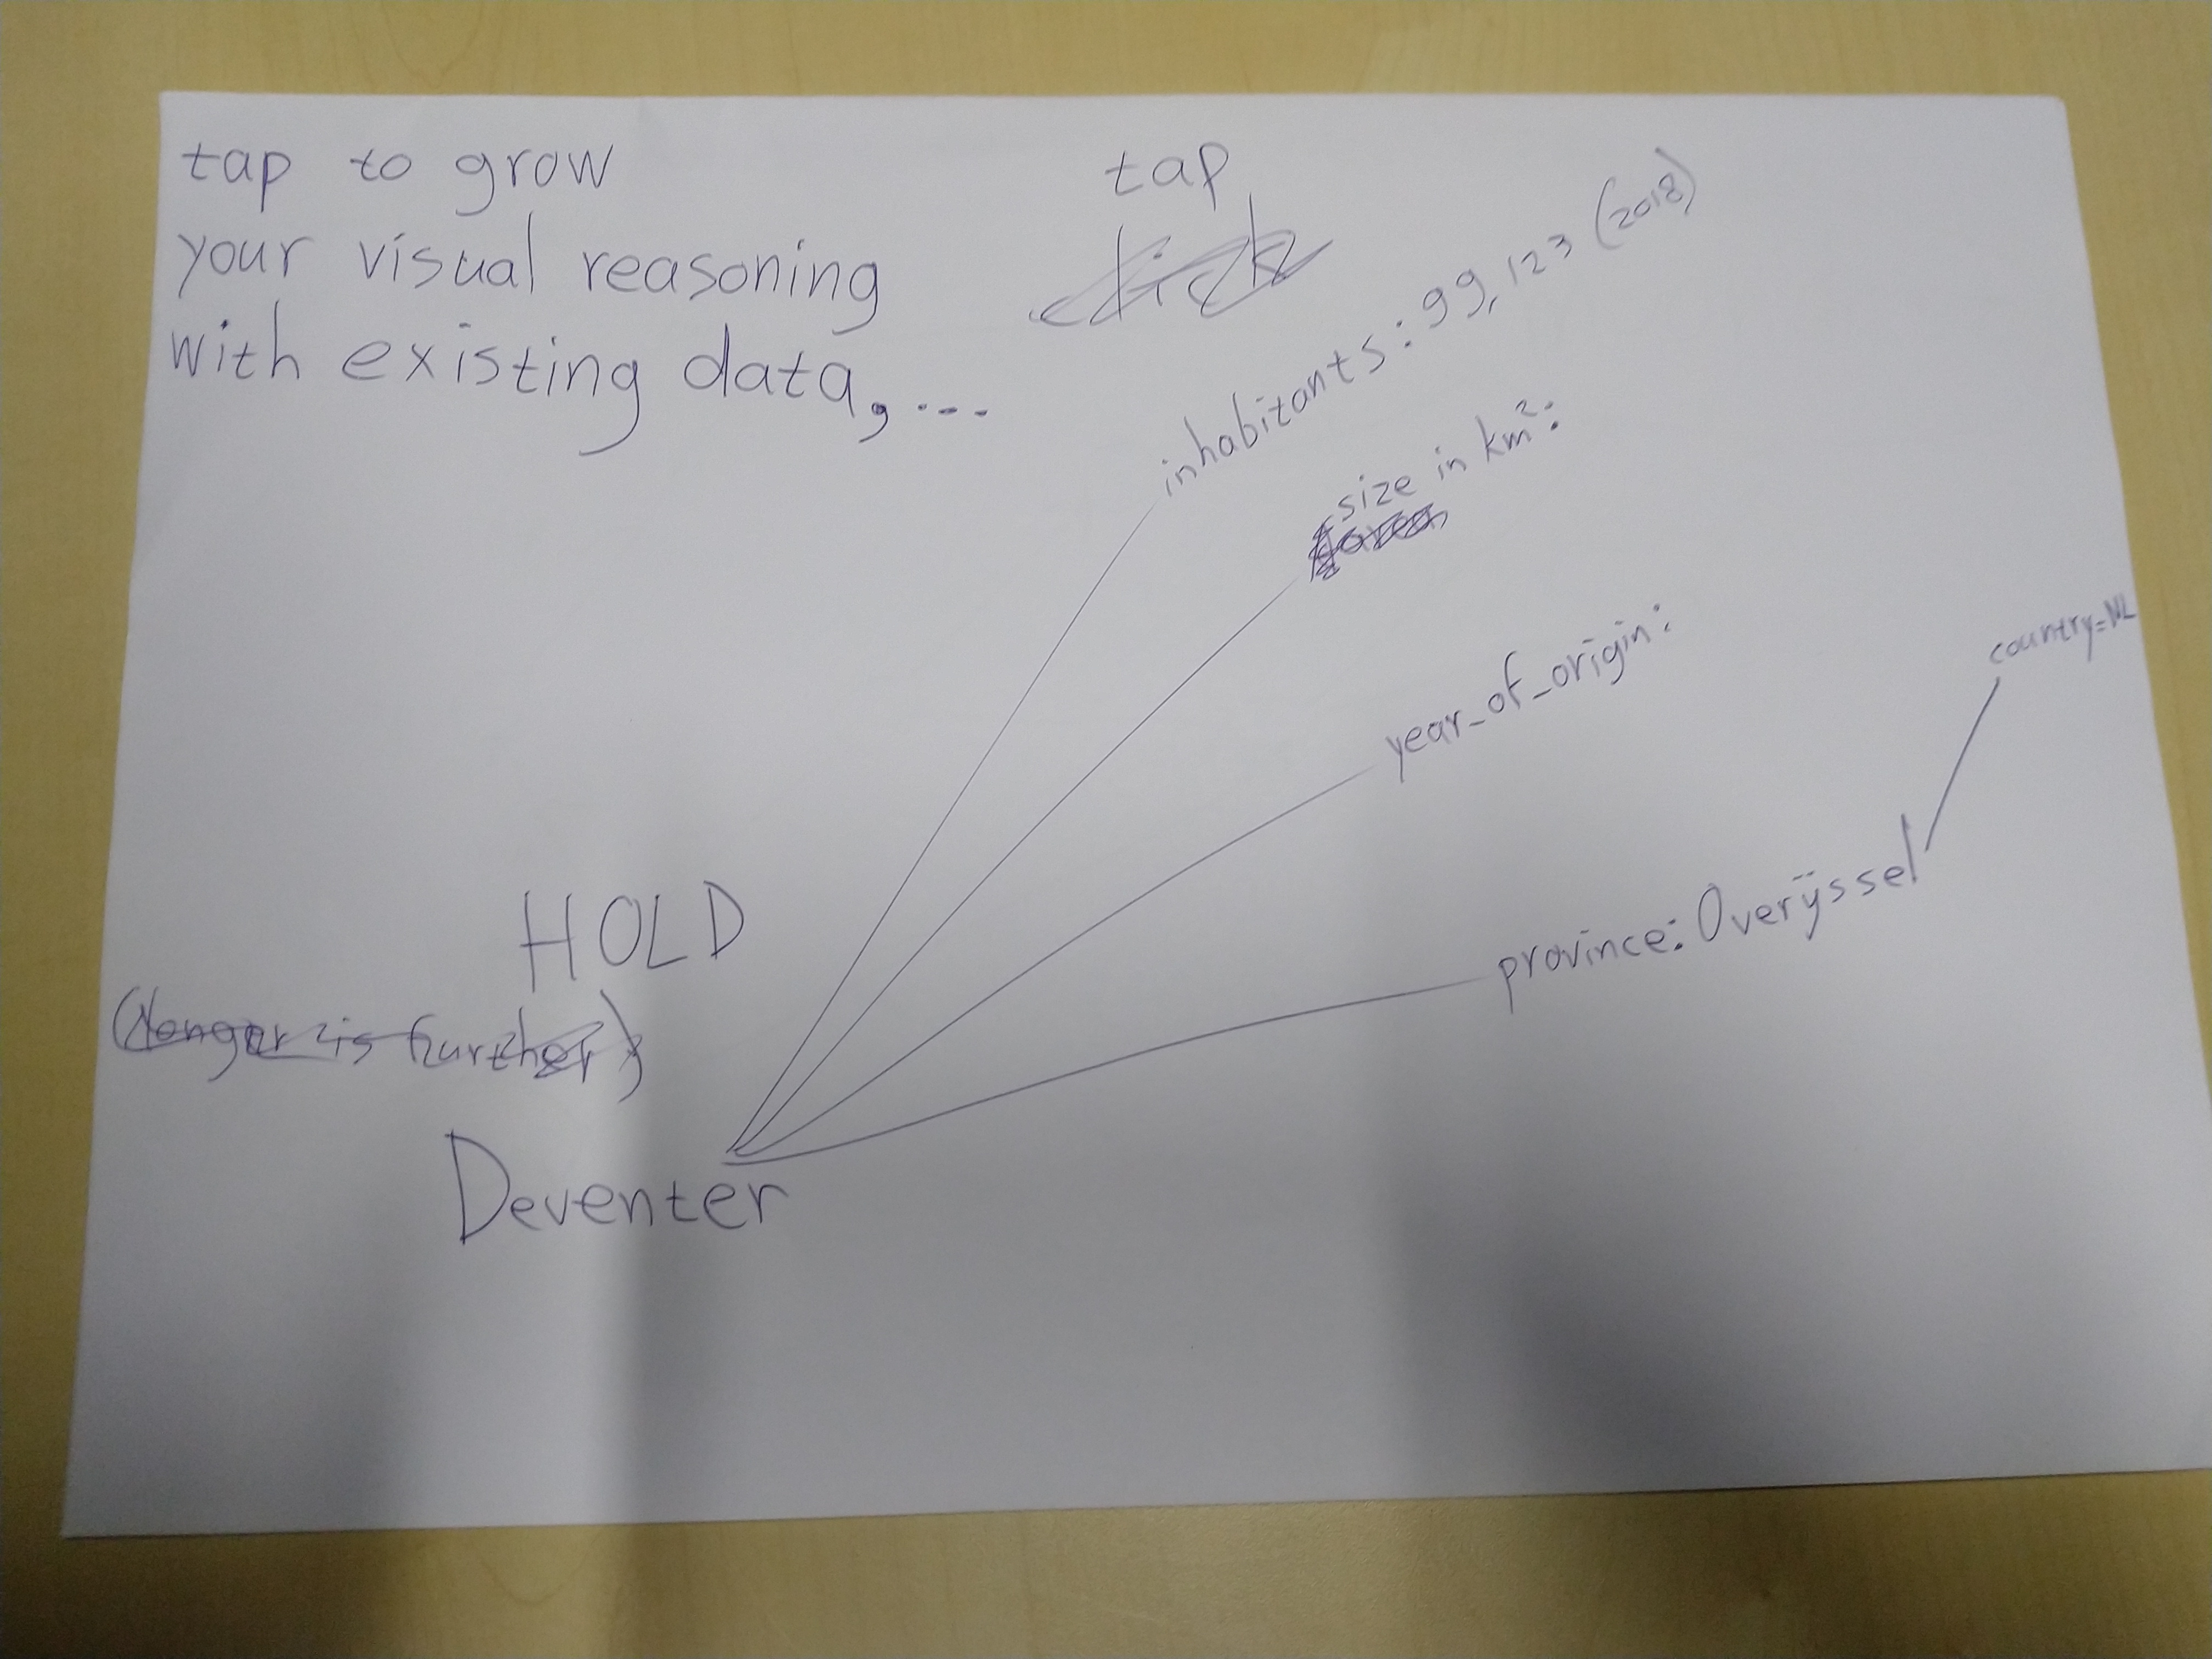 tap to grow
your visual reasoning
with existing data, ...
tap
click
inhabitants: 99,123 (2018)
size in km²:
year_of_origin:
country=NL
province: Overijssel
HOLD
(longer is further)
Deventer